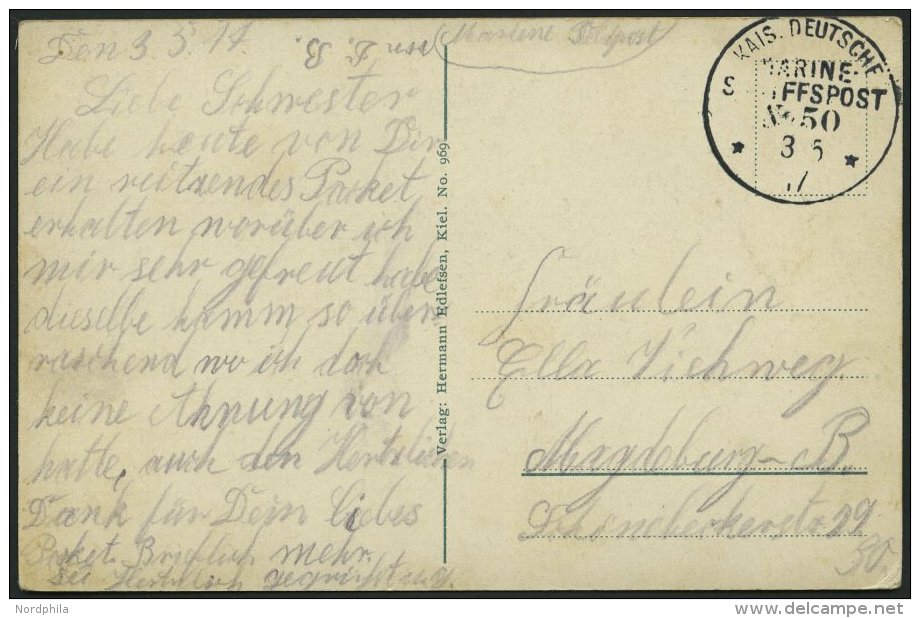 Den 3 5. 17.
Liebe Schwester
Habe heute von Dir
ein reitzendes Packet
erhalten worüber ich
mir sehr gefreut habe
dieselbe kamm so über
raschend wo ich doch
keine Ahnung von
hatte, auch den Hertzlichen
Dank für Dein liebes
Packet. Brieflich mehr.
Sei Hertzlich gegrüßt u. g.
von F. B.
Marine Feldpost
Verlag: Hermann Edlefsen, Kiel. No. 969
KAIS. DEUTSCHE
MARINE-
S IFFSPOST
No 50
* 3 5 *
17
Fräulein
Ella Viehweg
Magdeburg-B.
Schönebeckerstr 29
50.
Nordphila
www.delcampe.net